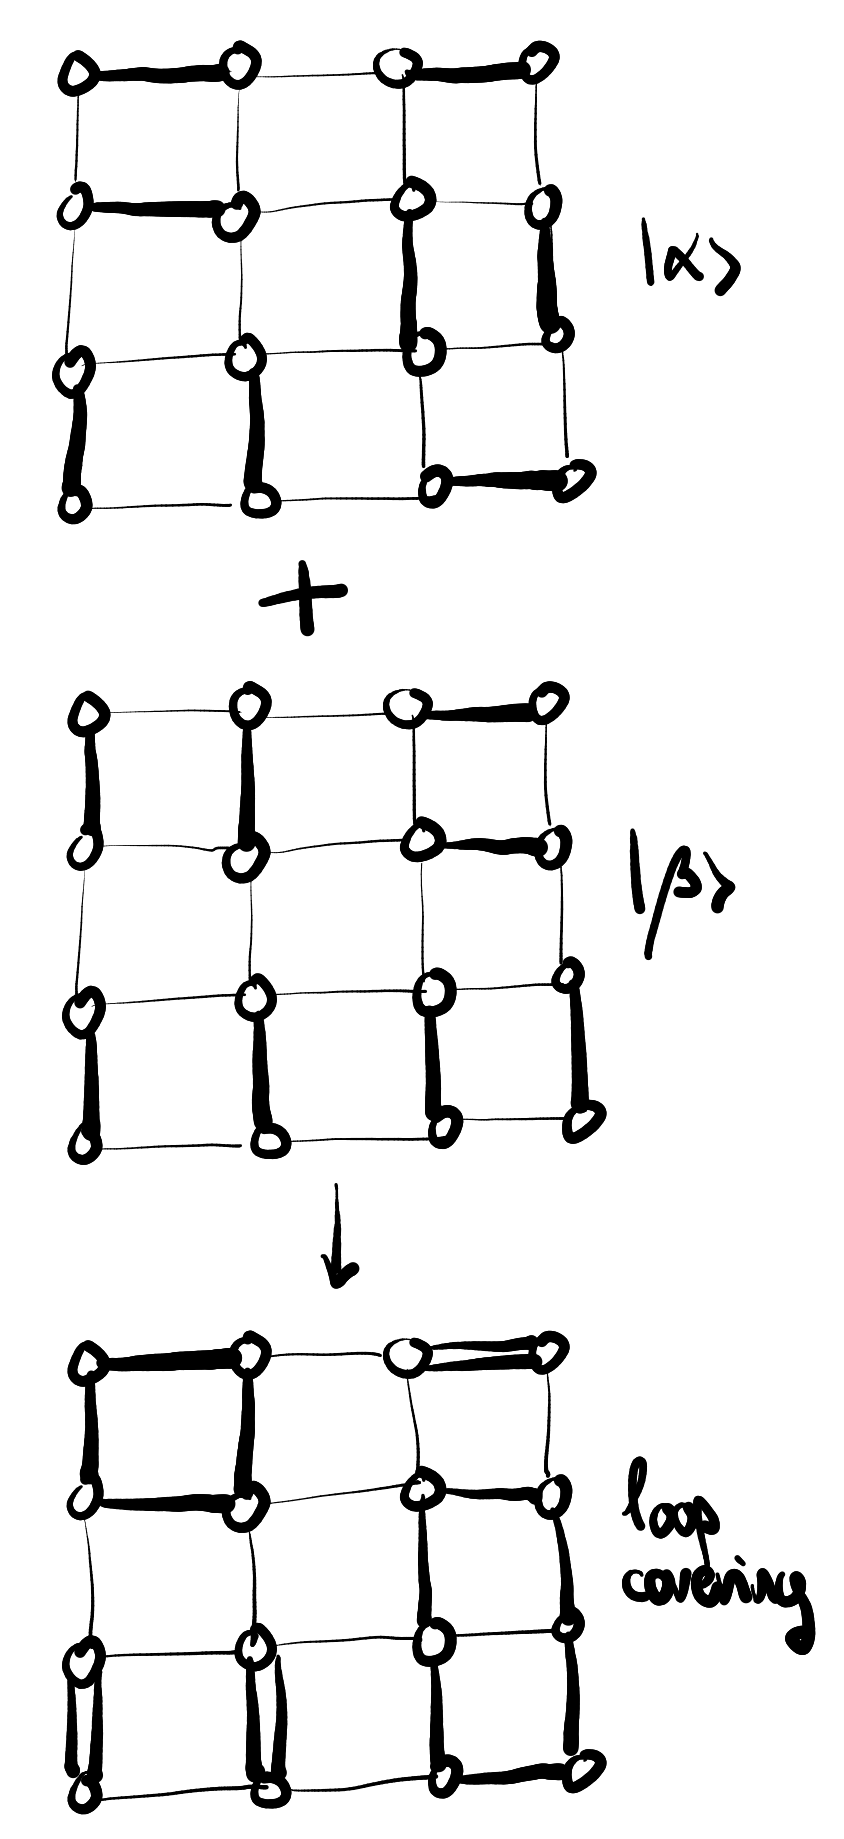 |α>
+
|β>
loop
covering